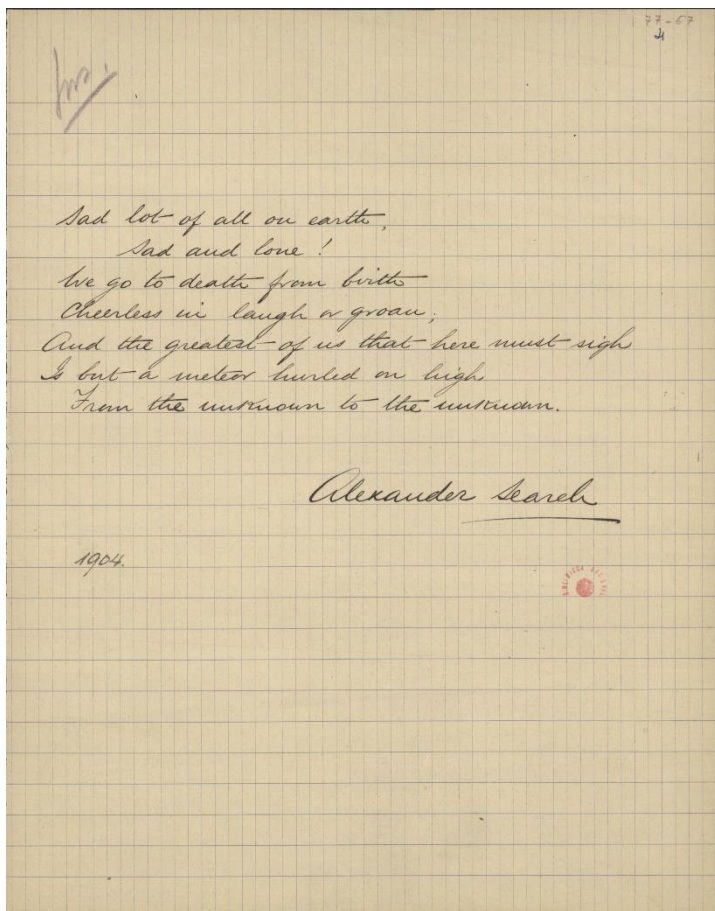 77-67
Sad lot of all on earth,
Sad and lone!
We go to death from birth
Cheerless in laugh or groan;
And the greatest of us that here must sigh
Is but a meteor hurled on high
From the unknown to the unknown.
Alexander Search
1904.
BIBLIOTECA NACIONAL